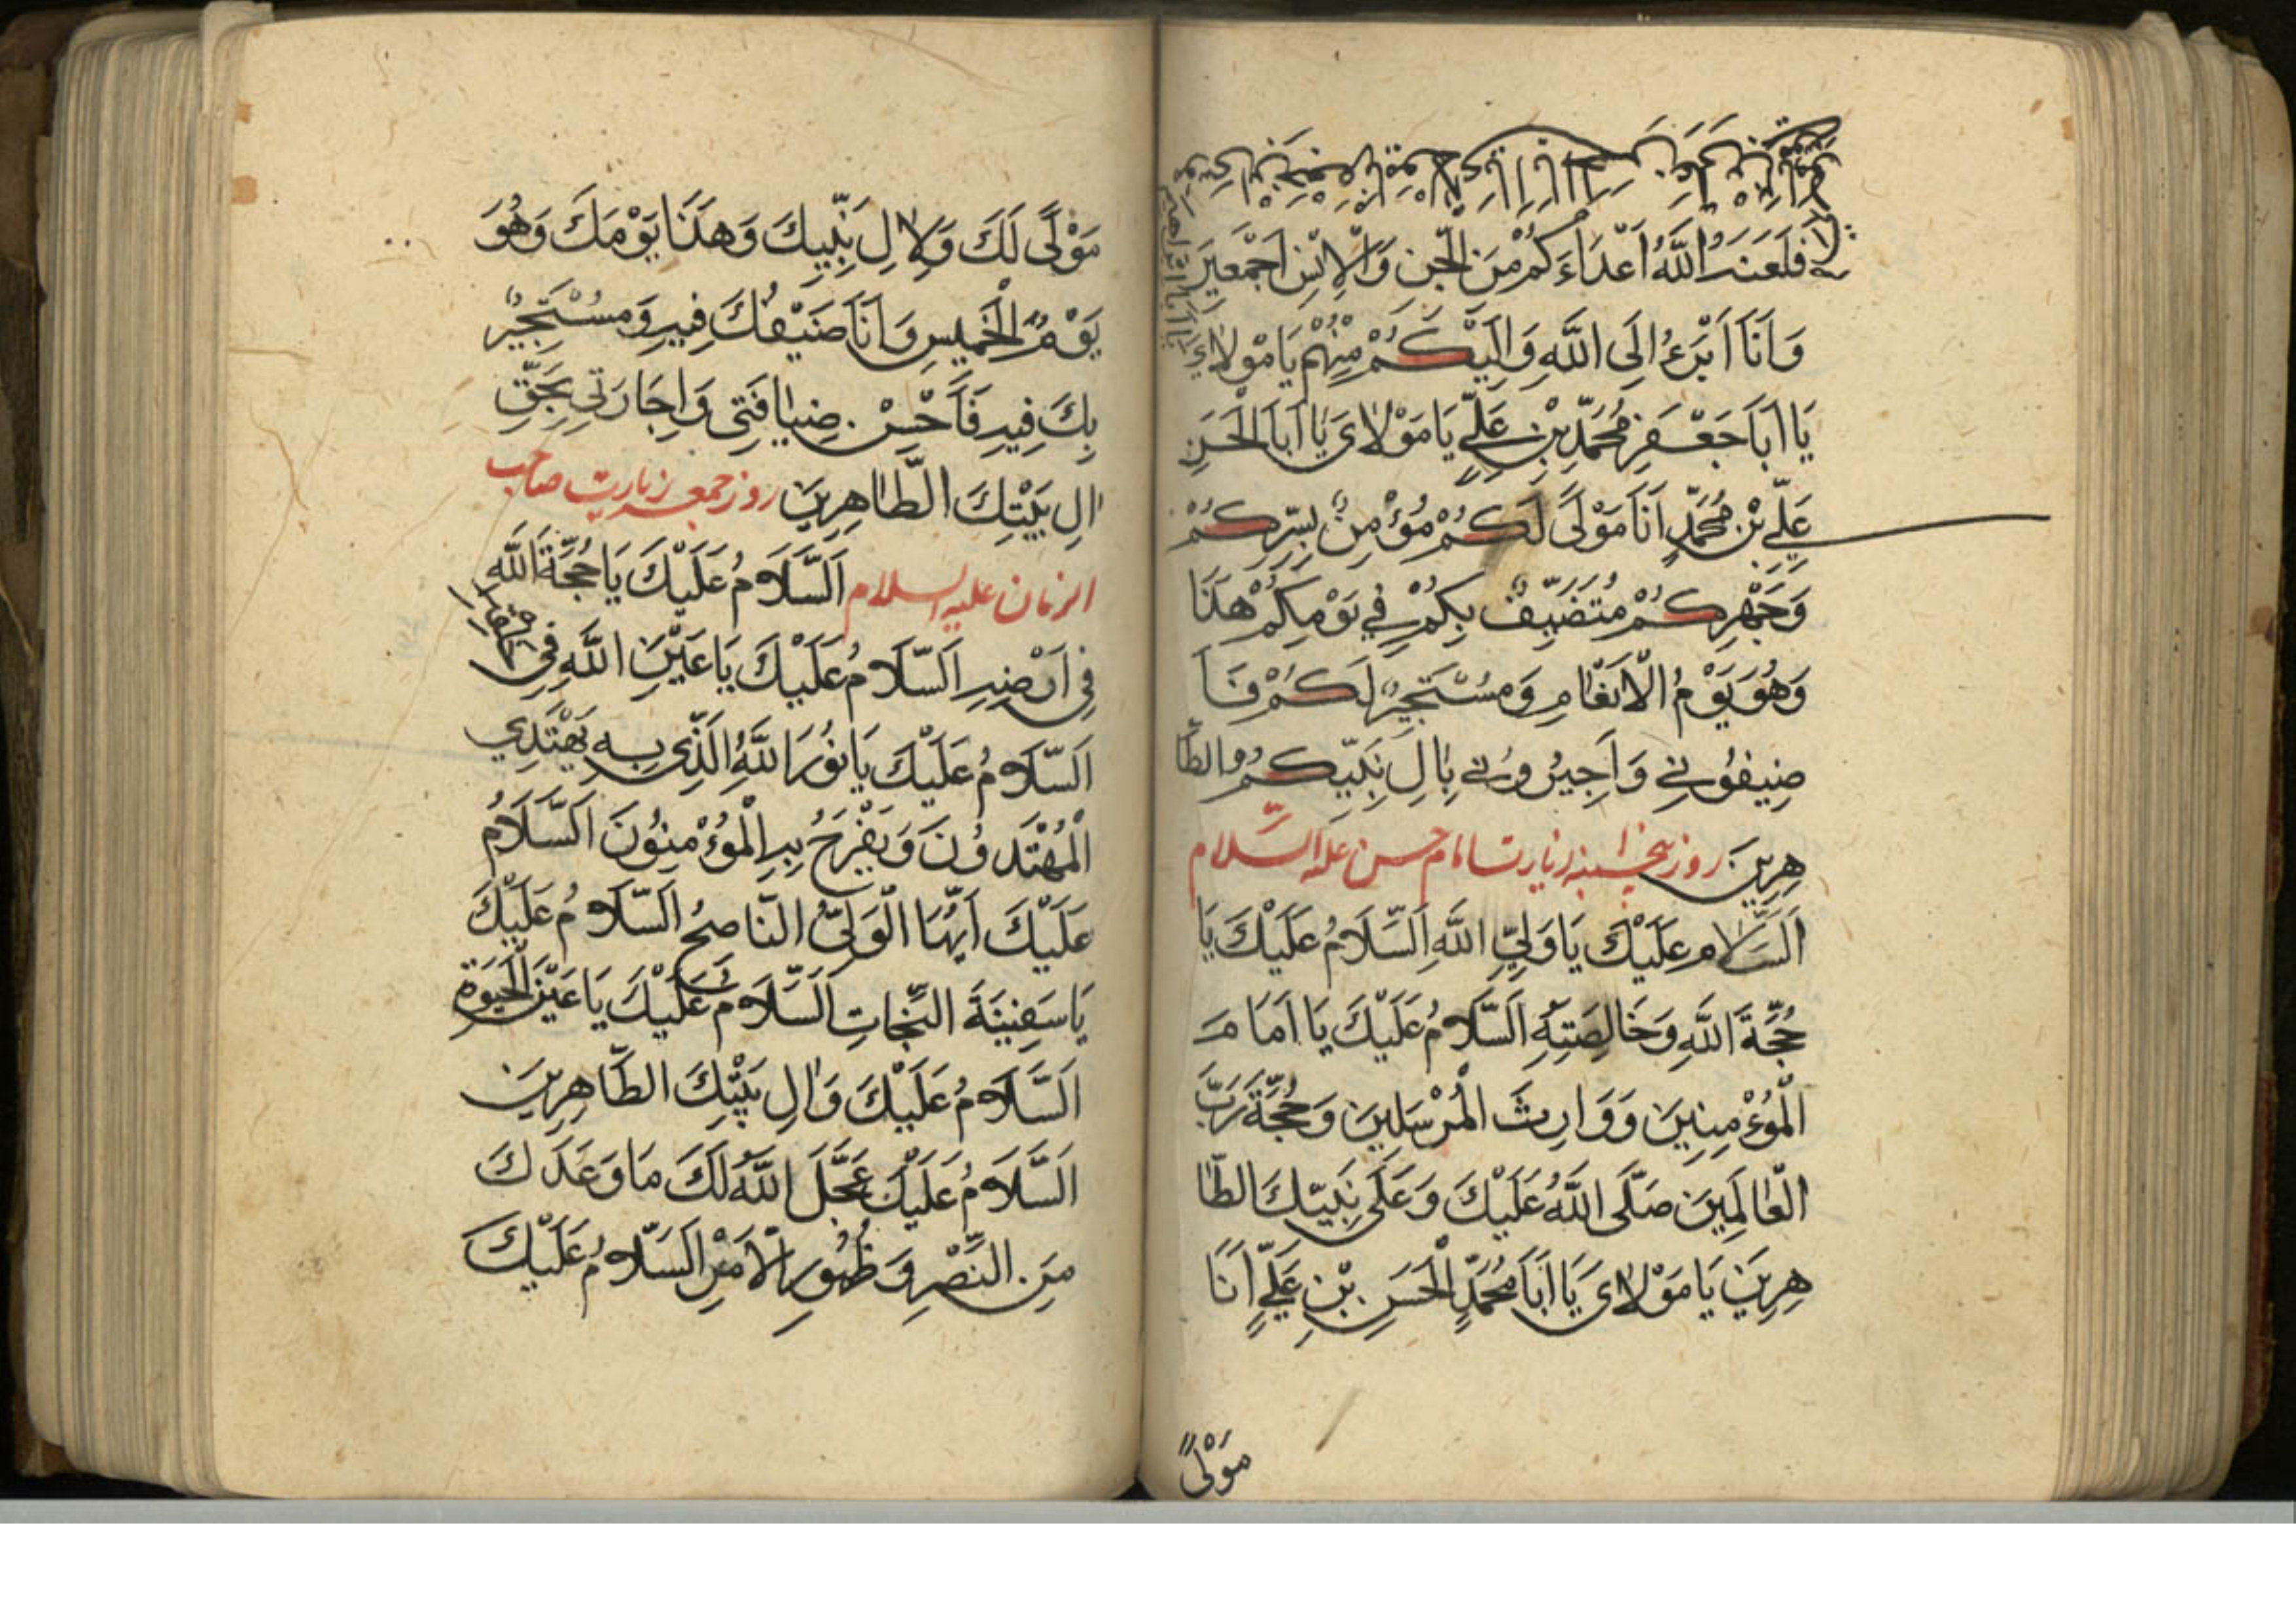 فَلَعَنَ اللَّهُ اَعْدَاءَكُمْ مِنَ الْجِنِ وَالْاِنْسِ اَجْمَعِينَ
وَاَنَا اَبْرَءُ اِلَى اللَّهِ وَاِلَيْكُمْ مِنْهُمْ يَا مَوْلَاىَ
يَا اَبَا جَعْفَرٍ مُحَمَّدِ بْنِ عَلِيٍّ يَا مَوْلَاىَ يَا اَبَا الْحَسَنِ
عَلِيِّ بْنِ مُحَمَّدٍ اَنَا مَوْلًى لَكُمْ مُؤْمِنٌ بِسِرِّكُمْ
وَجَهْرِكُمْ مُتَضَيِّفٌ بِكُمْ فِي يَوْمِكُمْ هَذَا
وَهُوَ يَوْمُ الْاَرْبَعَاءِ وَمُسْتَجِيرٌ لَكُمْ فَاَ
ضِيفُونِي وَاَجِيرُونِي بِاٰلِ بَيْتِكُمُ الطَّا
هِرِينَ روز پنجشنبه زیارت امام حسن علیه السّلام
اَلسَّلَام عَلَيْكَ يَا وَلِيَّ اللَّهِ اَلسَّلَامُ عَلَيْكَ يَا
حُجَّةَ اللَّهِ وَخَالِصَتِهِ اَلسَّلَامُ عَلَيْكَ يَا اَمَامَ
الْمُؤْمِنِينَ وَوَارِثَ الْمُرْسَلِينَ وَحُجَّةَ رَبِّ
الْعَالَمِينَ صَلَّى اللَّهُ عَلَيْكَ وَعَلَى بَيْتِكَ الطَّا
هِرِينَ يَا مَوْلَاىَ يَا اَبَا مُحَمَّدٍ الْحَسَنِ بْنِ عَلِيٍّ اَنَا
مَوْلًى
مَوْلًى لَكَ وَلِاٰلِ بَيْتِكَ وَهَذَا يَوْمُكَ وَهُوَ
يَوْمُ الْخَمِيسِ وَاَنَا ضَيْفُكَ فِيهِ وَمُسْتَجِيرٌ
بِكَ فِيهِ فَاَحْسِنْ ضِيَافَتِى وَاِجَارَتِى بِحَقِّ
اٰلِ بَيْتِكَ الطَّاهِرِينَ روز جمعه زیارت صاحب
الزمان علیه السلام اَلسَّلَامُ عَلَيْكَ يَا حُجَّةَ اللَّهِ
فِى اَرْضِهِ اَلسَّلَامُ عَلَيْكَ يَا عَيْنَ اللَّهِ فِى خلقه
اَلسَّلَامُ عَلَيْكَ يَا نُورَ اللَّهِ الَّذِى بِهِ يَهْتَدِي
الْمُهْتَدُونَ وَيَفْرَحُ بِهِ الْمُؤْمِنُونَ اَلسَّلَامُ
عَلَيْكَ اَيُّهَا الْوَلِىُّ النَّاصِحُ اَلسَّلَامُ عَلَيْكَ
يَا سَفِينَةَ النَّجَاتِ اَلسَّلَامُ عَلَيْكَ يَا عَيْنَ الْحَيٰوةِ
اَلسَّلَامُ عَلَيْكَ وَاٰلِ بَيْتِكَ الطَّاهِرِينَ
اَلسَّلَامُ عَلَيْكَ عَجَّلَ اللَّهُ لَكَ مَا وَعَدَكَ
مِنَ النَّصْرِ وَظُهُورِ الْاَمْرِ اَلسَّلَامُ عَلَيْكَ